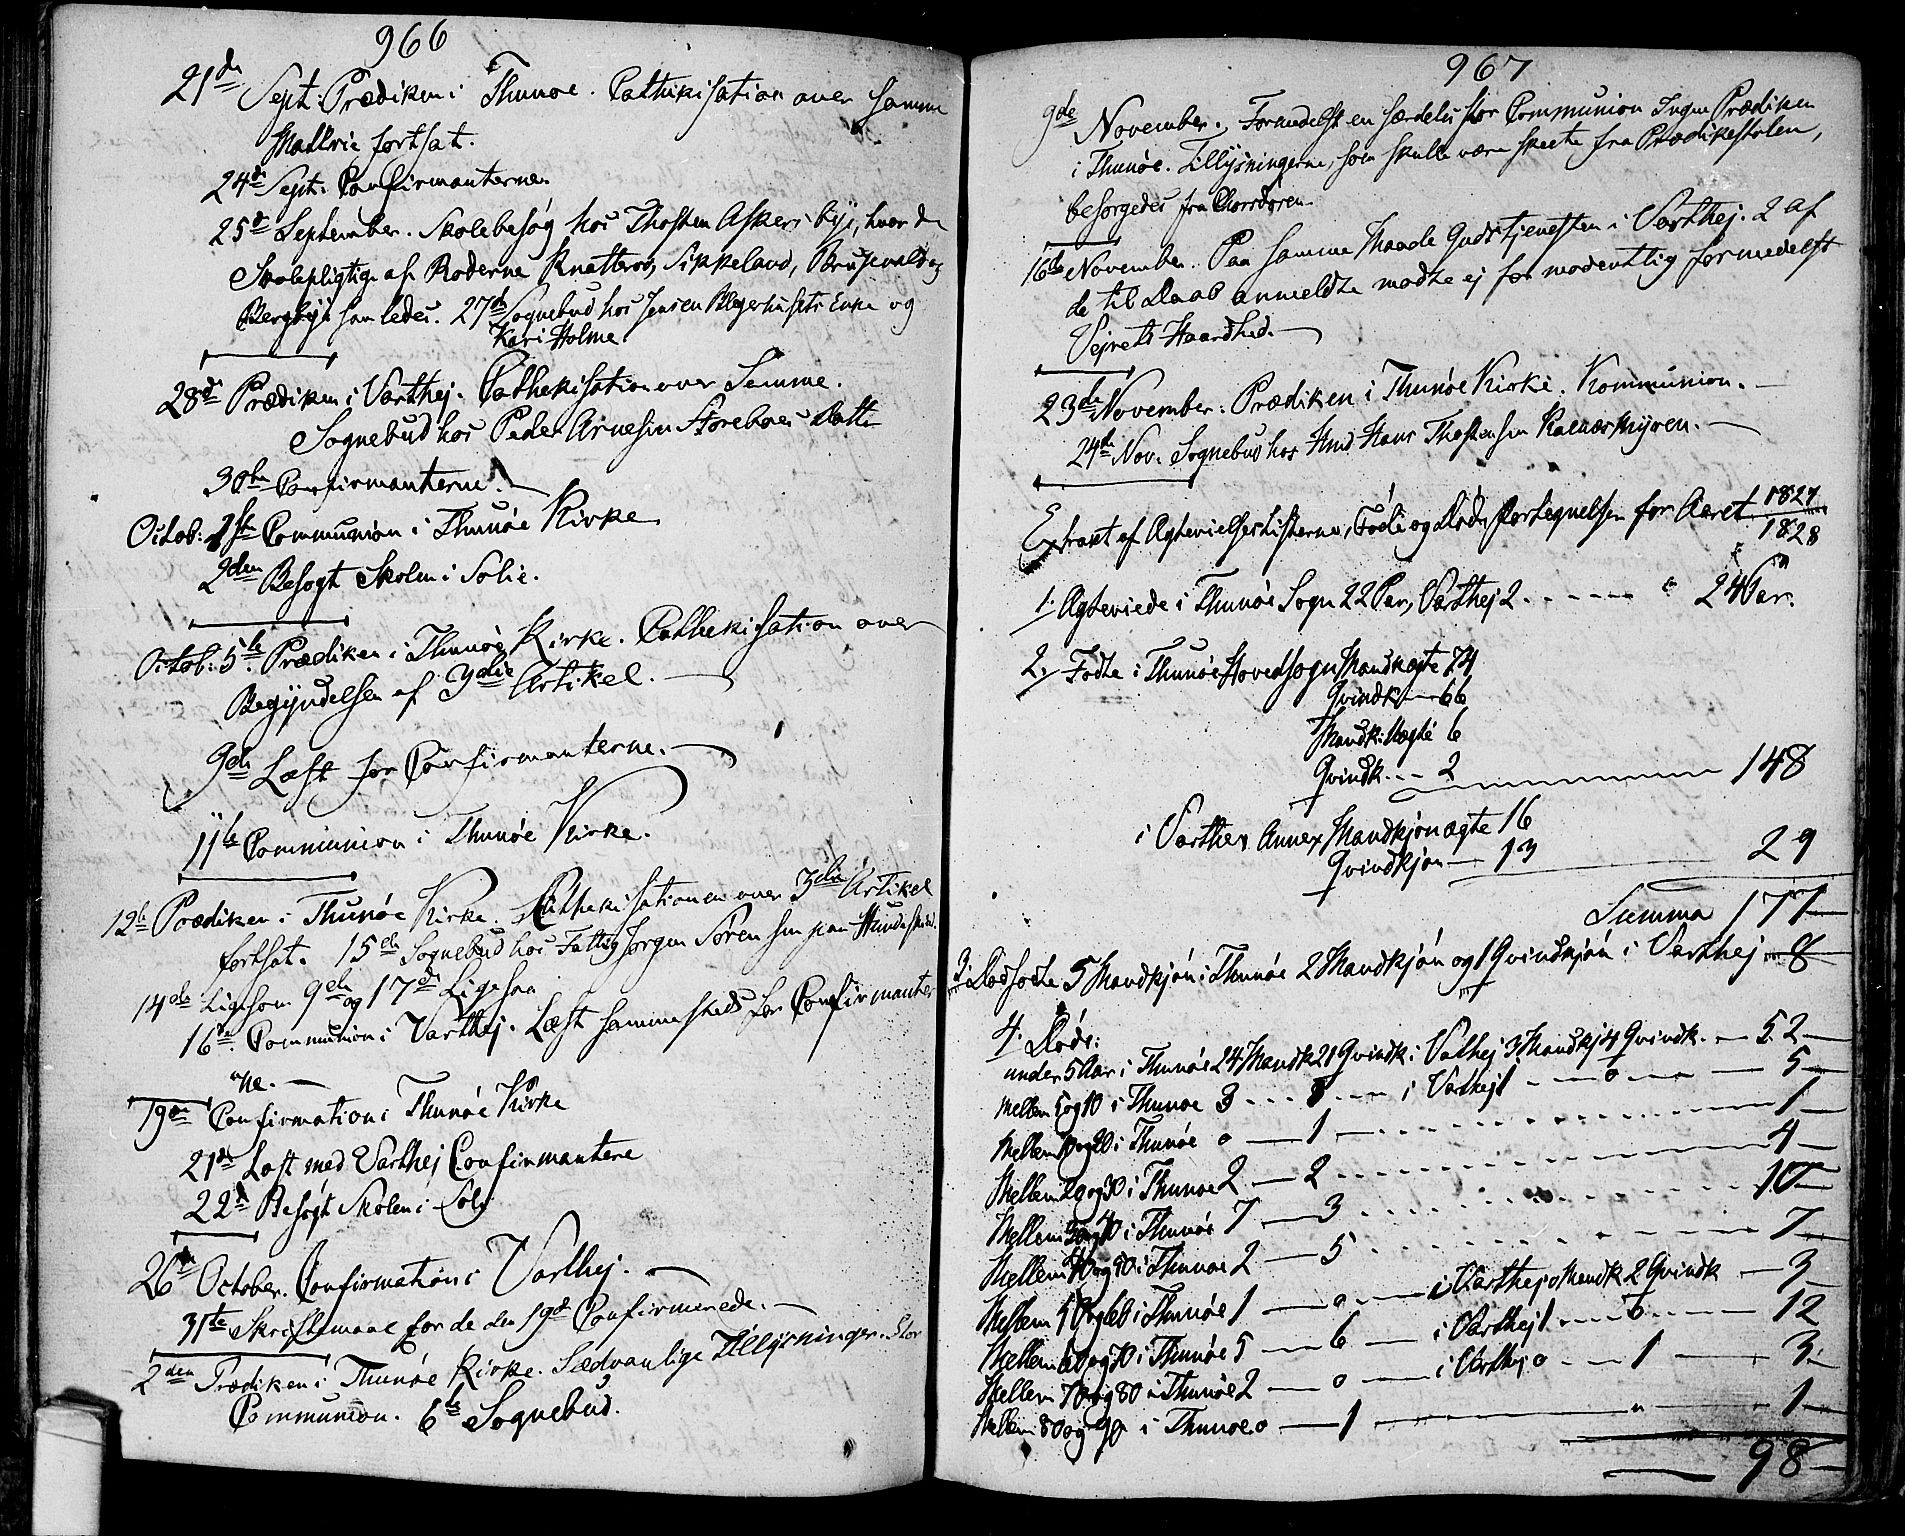 966
21de Sept: Prædiken i Thunøe. Cathekisation over samme
Matrie fortsat.
24de Sept: Confirmanterne
25de September. Skolebesøg hos Thosten Askers bye, hvor de
Skolepligtige af Roderne Knatterø, Sikkeland, Brusevold og
Bergbye samledes. 27de Sognebud hos Enke og
Kari Holme
28de Prædiken i Varthej. Cathekisation over Semme.
Sognebud hos Peder Arnesen Storeboes Datt
30te Confirmanterne.
Octob: 1ste Communion i Thunøe Kirke
2den Besøgt Skolen i Solie.
Octob: 5te Prædiken i Thunøe Kirke. Cathekisation over
Begyndelsen af 3die Artikel.
9de Læst for Confirmanterne.
11te Communion i Thunøe Kirke.
12te Prædiken i Thunøe Kirke. Cathekisationen over 3die Artikel
fortsat. 15de Sognebud hos Fattig Jørgen Sørensen paa
14de Ligesom 9de og 17de Ligesaa
16te Communion i Varthej. Læst sammesteds for Confirmanter
ne.
19de Confirmation i Thunøe Kirke
21de Læst med Varthej Confirmantere
22de Besøgt Skolen i Soly
26de October. Confirmation i Varthej.
31te Skriftemaal for de den 19de Confirmerede.
2den Prædiken i Thunøe Kirke. Sædvanlige Tillysninger. Stor
Communion. 6te Sognebud.
967
9de November. Formedelst en særdeles stor Communion Ingen Prædiken
i Thunøe. Tillysningerne, som skulle være skeete fra Prædikestolen,
besørgedes fra Chorsdøren
16de November. Paa samme Maade Gudstjenesten i Varthej. 2 af
de til Daab anmeldte mødte ej formodentlig formedelst
Vejrets Haardhed.
23de November: Prædiken i Thunøe Kirke. Kommunion.
24de Nov. Sognebud hos Hans Thostensen
Extract af Ægtevielseslisterne, Føde og Døds fortegnelsen for Aaret 1827
1828
1. Ægteviede i Thunøe Sogn 22 Par, Varthej 2 24 Par.
2. Fødte i Thunøe Hovedsogn Mandkægte 74
Qvindk 66
Mandk: Uægte 6
Qvindk 2 148
i Varthej Annex Mandkjønægte 16
Qvindkjøn 13 29
Summa 177
3. Dødfødte 5 Mandkjøn i Thunøe 2 Mandkjøn og 1 Qvindkjøn i Varthej 8
4. Døde:
under 5 Aar i Thunøe 24 Mandk 21 Qvindk i Vathej 3 Mandkj 4 Qvindk. 52
Mellem 5 og 10 i Thunøe 3 i Varthej 1 0 5
Mellem 10 og 20 i Thunøe 0 1 1
Mellem 20 og 30 i Thunøe 2 2 4
Mellem 30 og 40 i Thunøe 7 3 10
Mellem 40 og 50 i Thunøe 2 5 7
Mellem 50 og 60 i Thunøe 1 0 i Varthej 0 Mandk 2 Qvindk 3
Mellem 60 og 70 i Thunøe 5 6 i Varthej 1 0 12
Mellem 70 og 80 i Thunøe 2 0 i Varthej 0 1 3
Mellem 80 og 90 i Thunøe 0 1 1
98